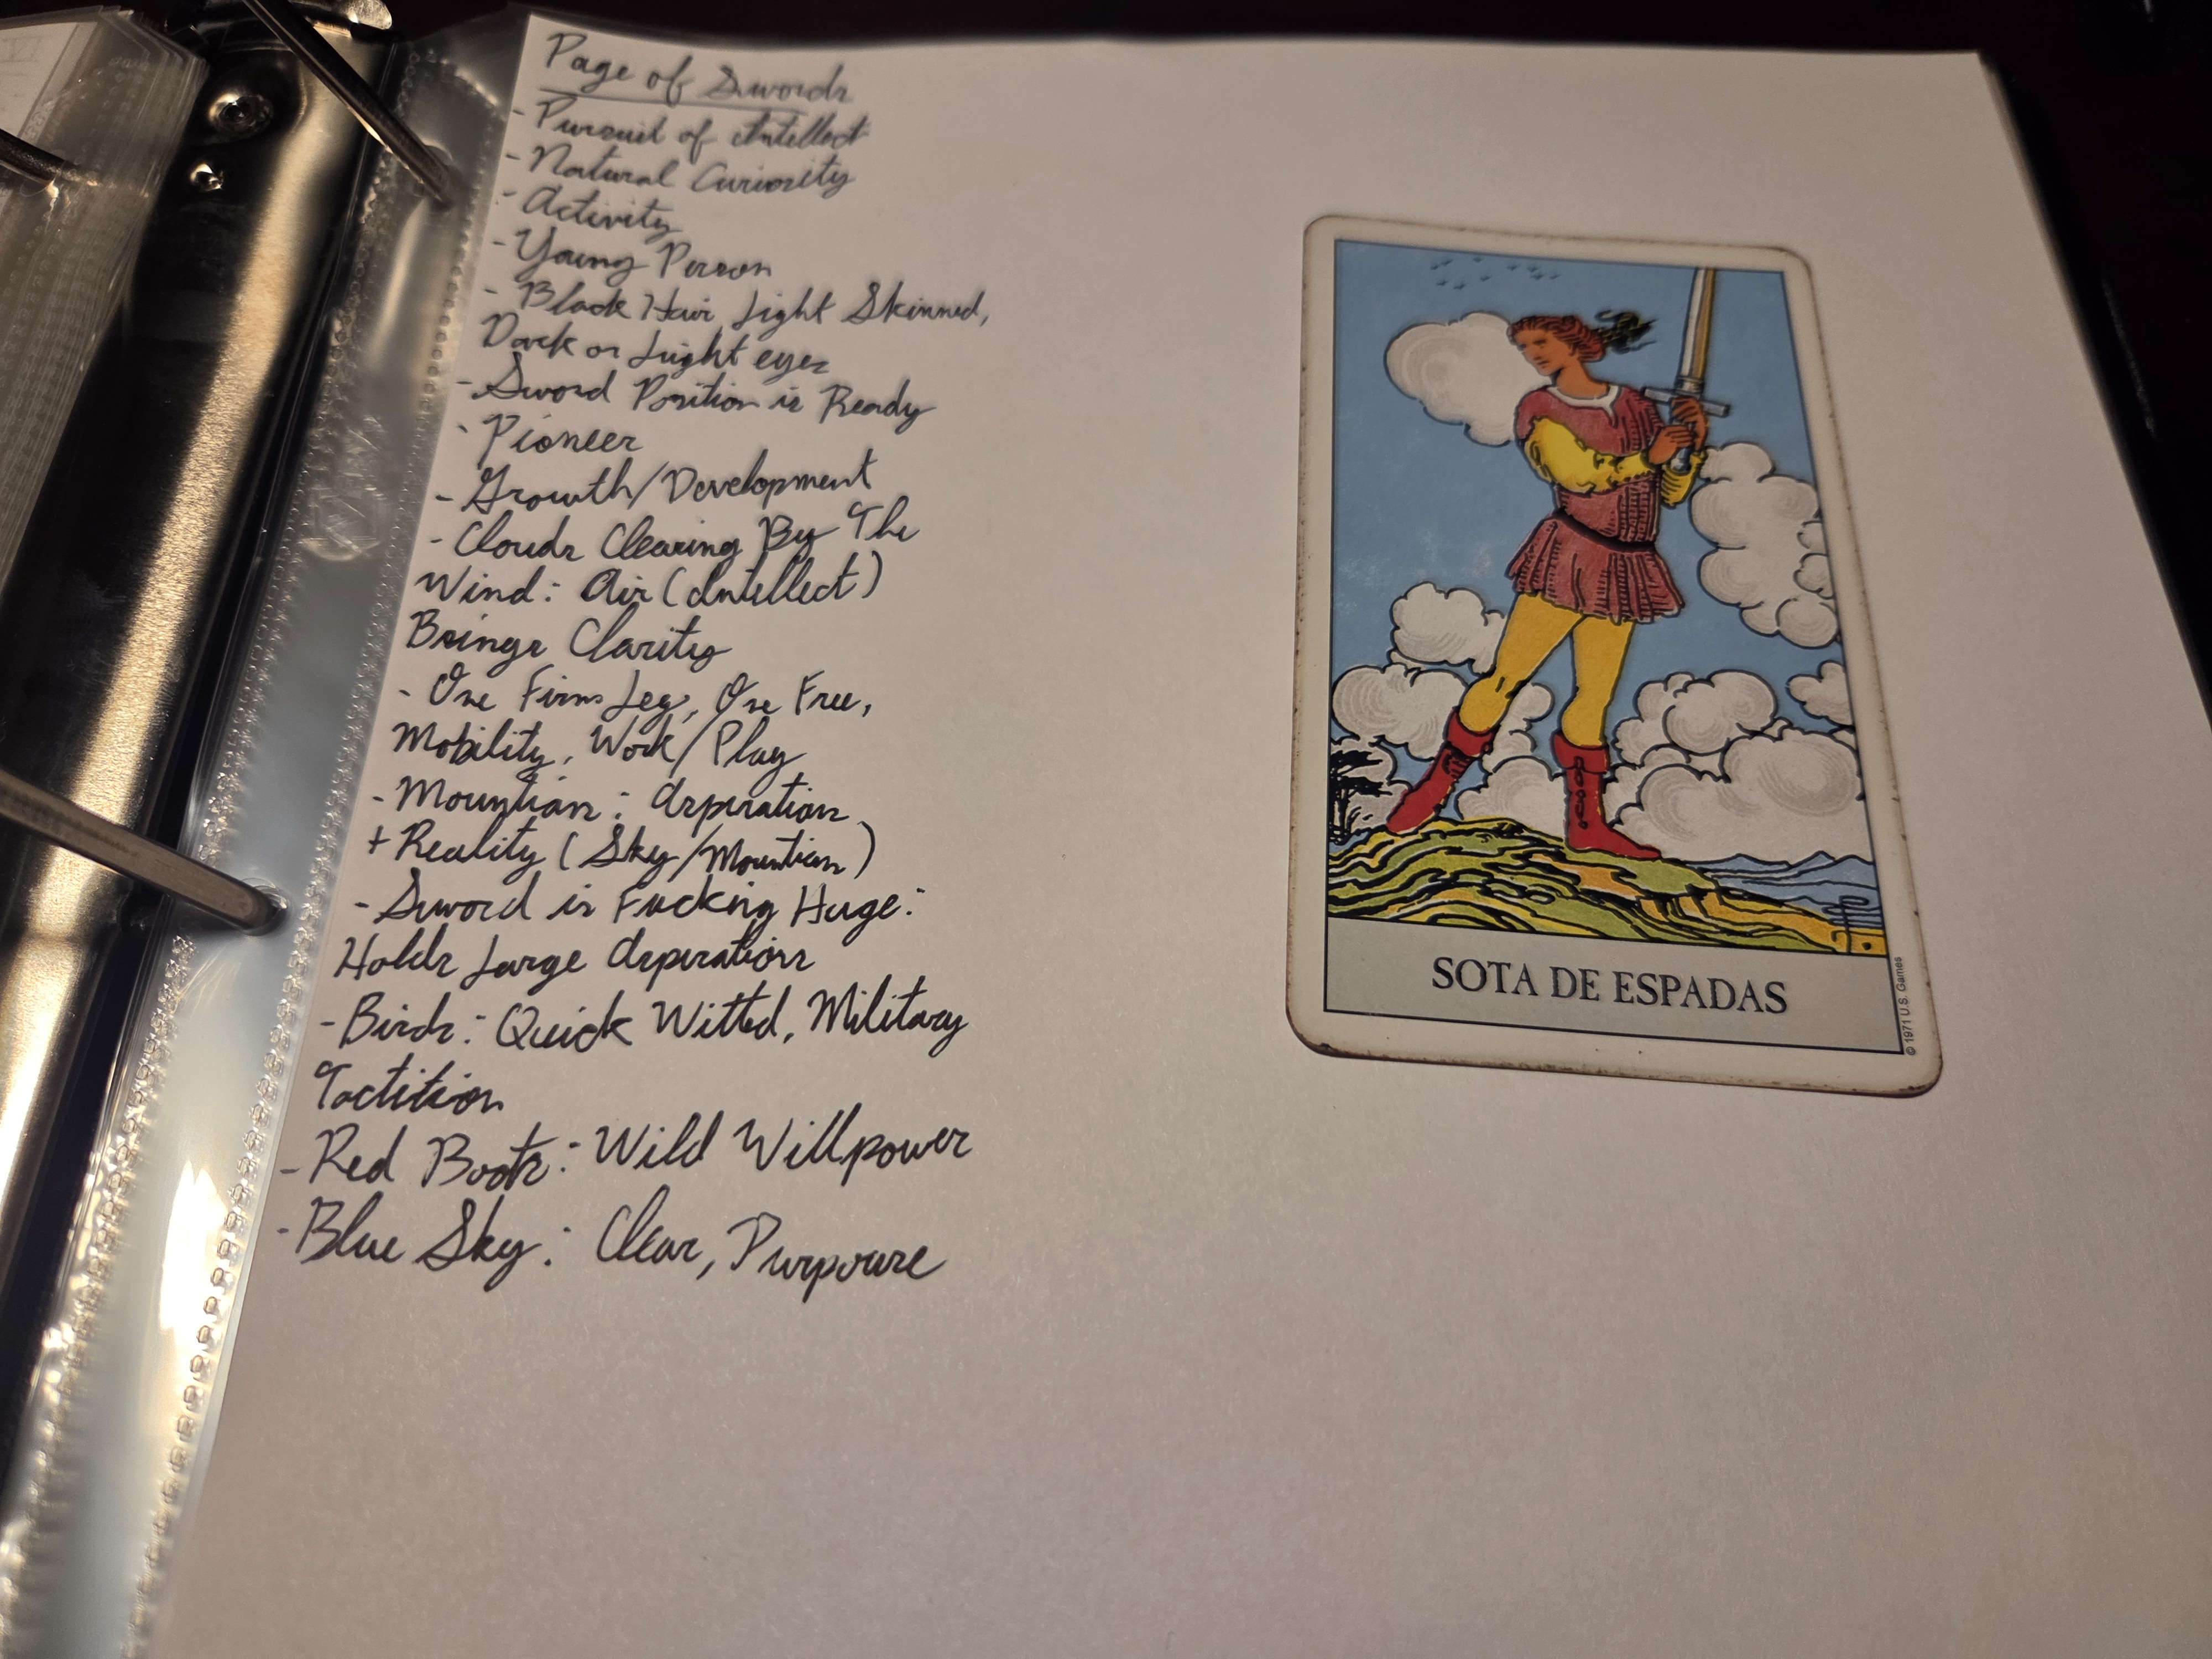 Page of Swords
- Pursuit of Intellect
- Natural Curiosity
- Activity
- Young Person
- Black Hair, Light Skinned,
Dark or Light eyes
- Sword Position is Ready
- Pioneer
- Growth/Development
- Clouds Clearing By The
Wind: Air (Intellect)
Brings Clarity
- One Firm Leg, One Free,
Mobility, Work/Play
- Mountian: Aspiration
+ Reality (Sky/Mountian)
- Sword is Fucking Huge:
Holds Large Aspirations
- Birds: Quick Witted, Military
Tactition
- Red Boots: Wild Willpower
- Blue Sky: Clear, Purpouse
SOTA DE ESPADAS
© 1971 U.S. Games